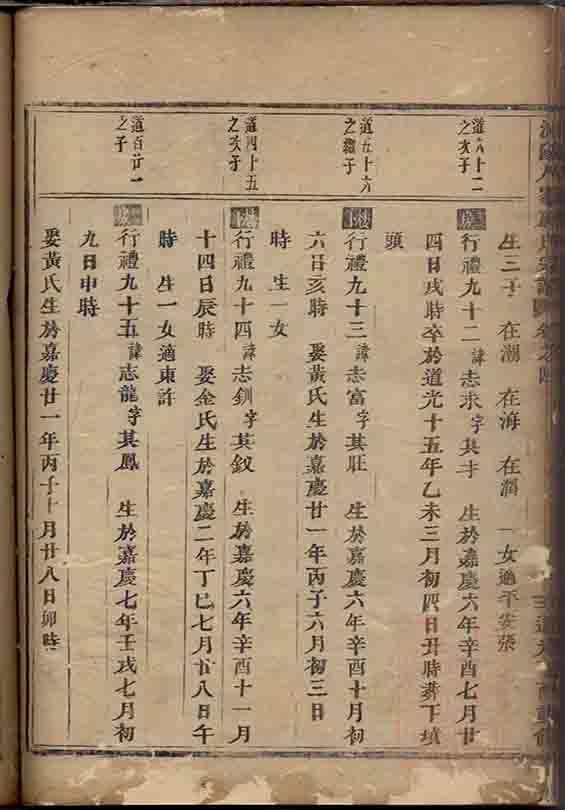 生三子 在潮 在海 在潤 一女適平安張
道六十二
之次子
行禮九十二諱志求字其才 生於嘉慶六年辛酉七月廿
四日戌時卒於道光十五年乙未三月初四日丑時葬下墳
頭
道五十六
之繼子
行禮九十三諱志富字其旺 生於嘉慶六年辛酉十月初
六日亥時 娶黃氏生於嘉慶廿一年丙子六月初三日
時 生一女
道四十五
之次子
行禮九十四諱志釧字其釵 生於嘉慶六年辛酉十一月
十四日辰時 娶金氏生於嘉慶二年丁巳七月廿八日午
時 生一女適東許
道百廿一
之子
行禮九十五諱志龍字其鳳 生於嘉慶七年壬戌七月初
九日申時
娶黃氏生於嘉慶廿一年丙子十月廿八日卯時